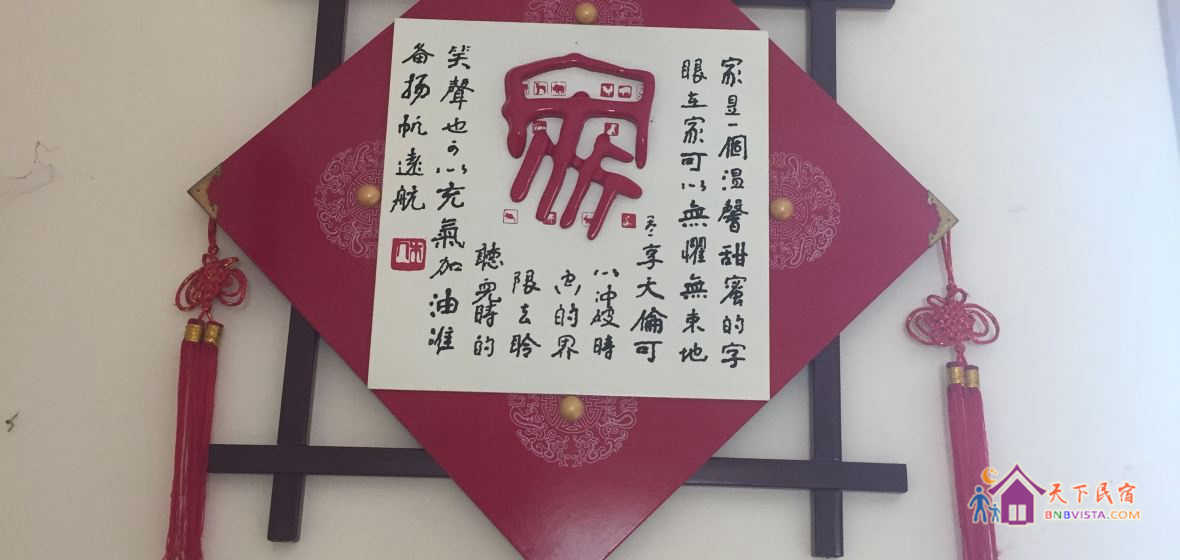 家是一個溫馨甜蜜的字
眼在家可以無懼無束地
尽享天倫可
以冲破時
空的界
限去聆
聽兒時的
笑聲也可以充氣加油准
备扬帆遠航
家
天下民宿
BNBVISTA.COM